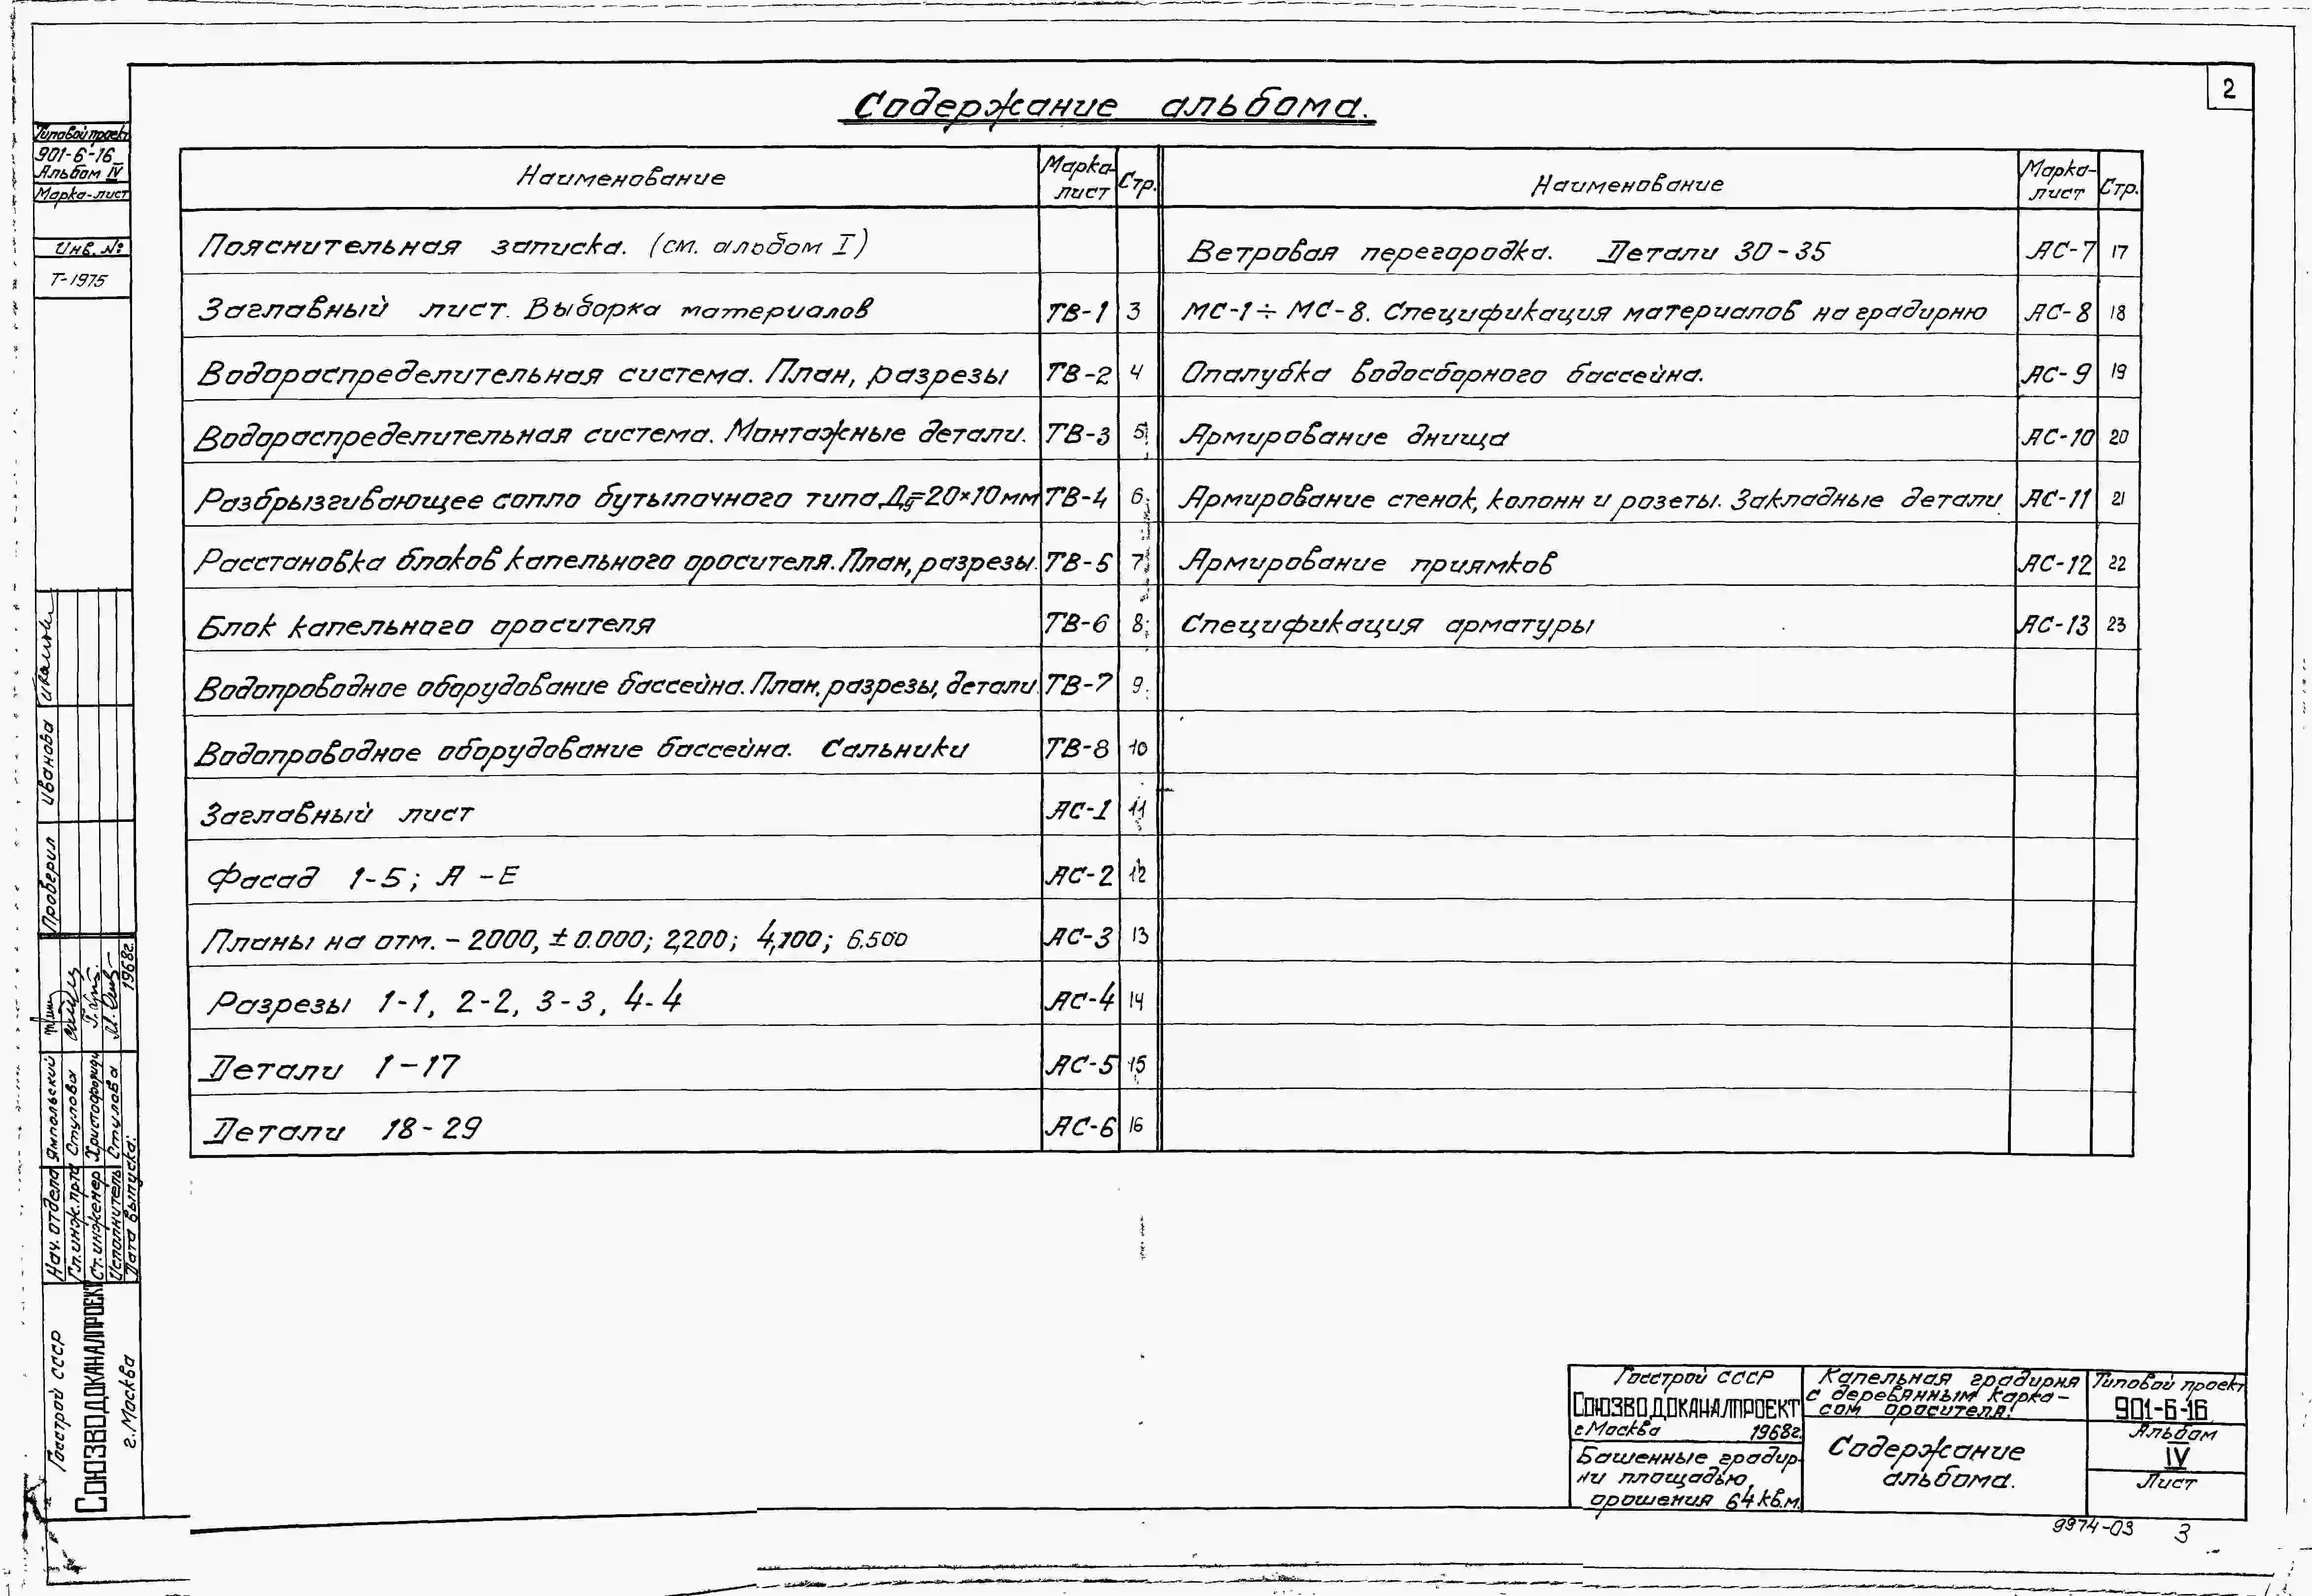 2
Содержание альбома.
Типовой проект
901-6-16
Альбом IV
Марка-лист
Инв. №
Т-1975
Наименование Марка-лист Стр.
Пояснительная записка. (см. альбом I)
Заглавный лист. Выборка материалов ТВ-1 3
Водораспределительная система. План, разрезы ТВ-2 4
Водораспределительная система. Монтажные детали. ТВ-3 5
Разбрызгивающее сопло бутылочного типа Ду=20×10мм ТВ-4 6
Расстановка блоков капельного оросителя. План, разрезы. ТВ-5 7
Блок капельного оросителя ТВ-6 8
Водопроводное оборудование бассейна. План, разрезы, детали. ТВ-7 9
Водопроводное оборудование бассейна. Сальники ТВ-8 10
Заглавный лист АС-1 11
Фасад 1-5; А-Е АС-2 12
Планы на отм. -2000, ±0.000; 2,200; 4,100; 6.500 АС-3 13
Разрезы 1-1, 2-2, 3-3, 4-4 АС-4 14
Детали 1-17 АС-5 15
Детали 18-29 АС-6 16
Наименование Марка-лист Стр.
Ветровая перегородка. Детали 30-35 АС-7 17
МС-1÷МС-8. Спецификация материалов на градирню АС-8 18
Опалубка водосборного бассейна. АС-9 19
Армирование днища АС-10 20
Армирование стенок, колонн и розеты. Закладные детали АС-11 21
Армирование приямков АС-12 22
Спецификация арматуры АС-13 23
Проверил Иванова
Нач. отдела Ямпольский
Гл.инж.пр-та Стулова
Ст.инженер Христофориди
Исполнитель Стулова
Дата выпуска: 1968г.
Госстрой СССР
СОЮЗВОДОКАНАЛПРОЕКТ
г.Москва
Госстрой СССР
СОЮЗВОДОКАНАЛПРОЕКТ
г.Москва 1968г.
Башенные градир-
ни площадью
орошения 64 кв.м.
Капельная градирня
с деревянным карка-
сом оросителя.
Содержание
альбома.
Типовой проект
901-6-16
Альбом
IV
Лист
9974-03 3